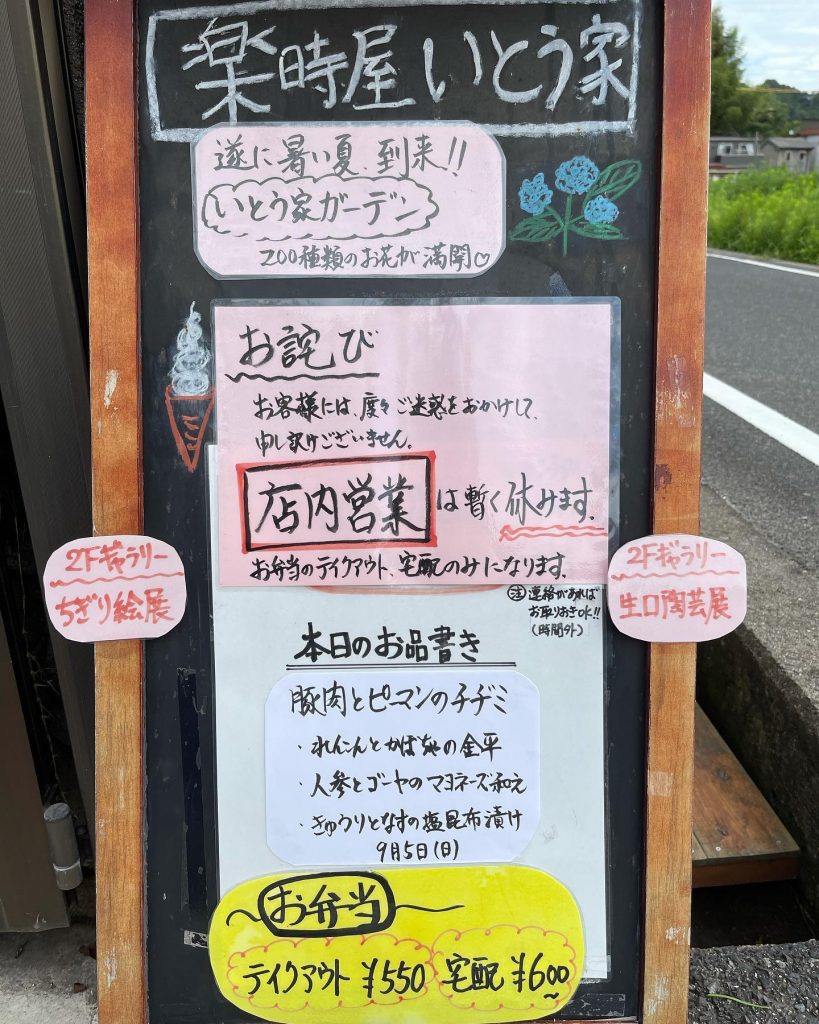 楽時屋 いとう家
遂に暑い夏 到来!!
いとう家ガーデン
200種類のお花が満開♡
お詫び
お客様には、度々ご迷惑をおかけして、
申し訳けございません。
店内営業は暫く休みます。
お弁当のテイクアウト、宅配のみになります。
2Fギャラリー
ちぎり絵展
2Fギャラリー
生口陶芸展
注 連絡があれば
お取りおきOK!!
(時間外)
本日のお品書き
豚肉とピーマンのチヂミ
・れんこんとかぼちゃの金平
・人参とゴーヤのマヨネーズ和え
・きゅうりとなすの塩昆布漬け
9月5日(日)
お弁当
テイクアウト ¥550 宅配 ¥600